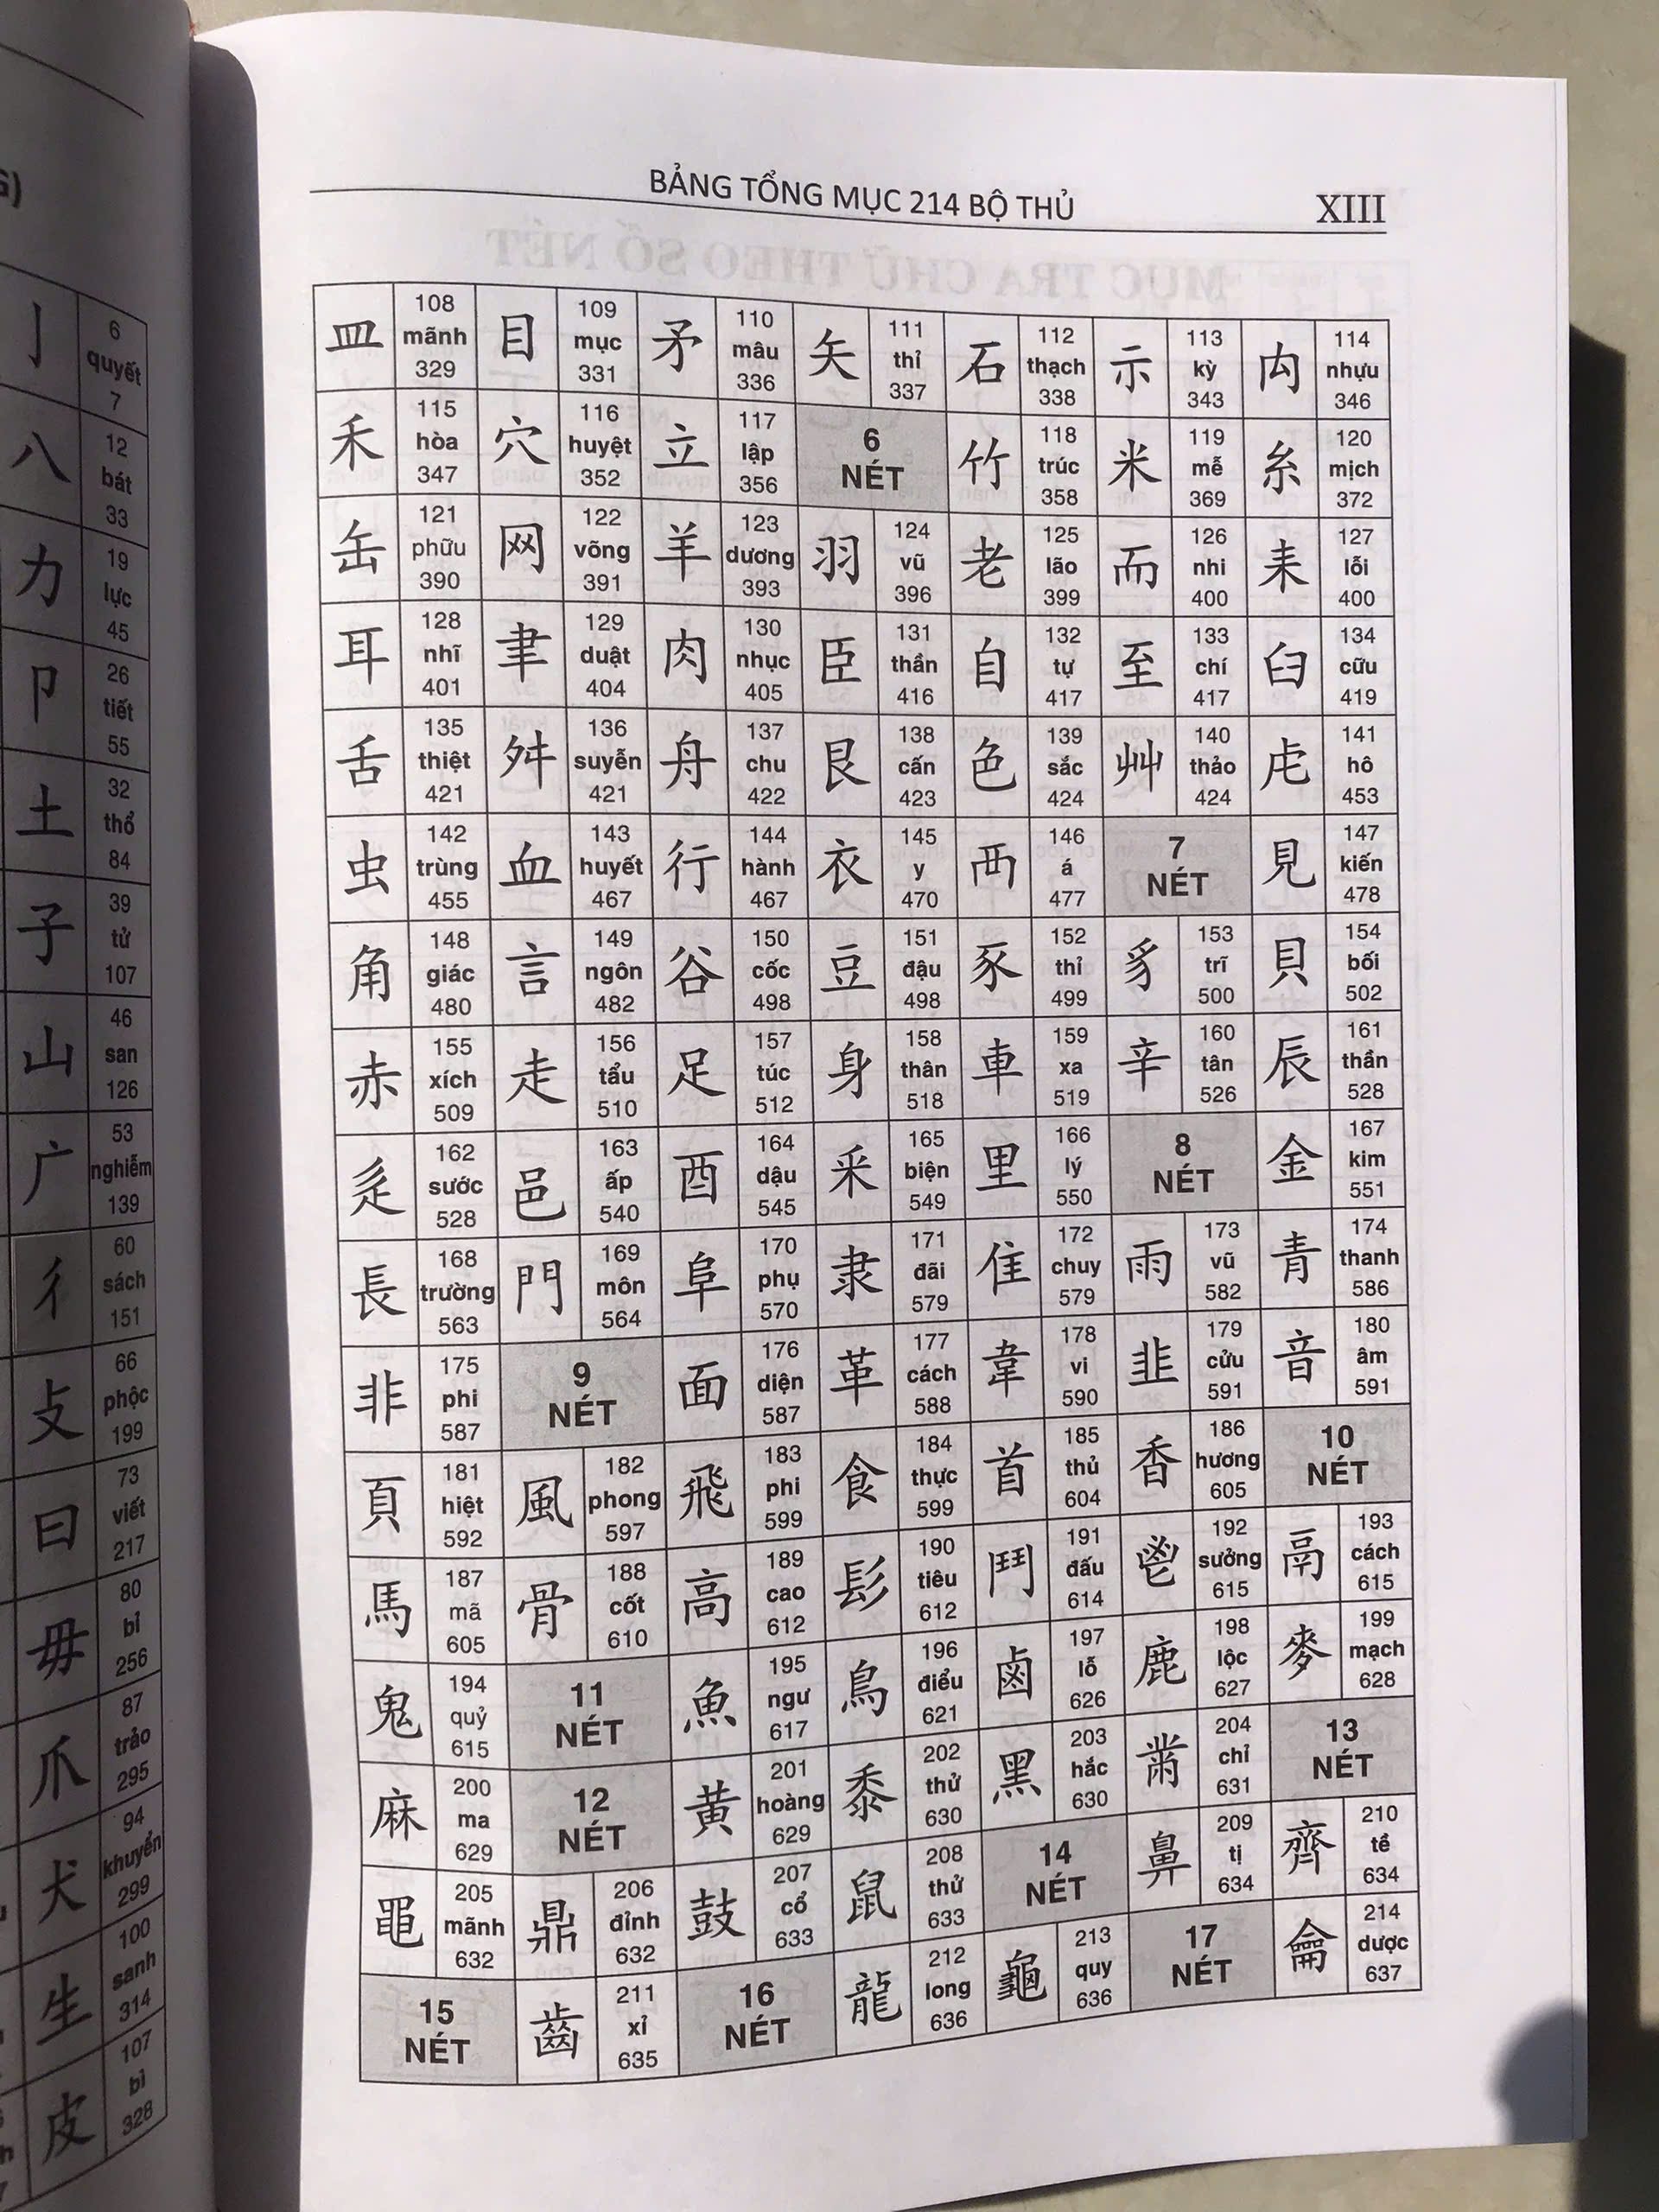 BẢNG TỔNG MỤC 214 BỘ THỦ XIII
皿 108 mãnh 329 目 109 mục 331 矛 110 mâu 336 矢 111 thỉ 337 石 112 thạch 338 示 113 kỳ 343 禸 114 nhựu 346
禾 115 hòa 347 穴 116 huyệt 352 立 117 lập 356 6 NÉT 竹 118 trúc 358 米 119 mễ 369 糸 120 mịch 372
缶 121 phữu 390 网 122 võng 391 羊 123 dương 393 羽 124 vũ 396 老 125 lão 399 而 126 nhi 400 耒 127 lỗi 400
耳 128 nhĩ 401 聿 129 duật 404 肉 130 nhục 405 臣 131 thần 416 自 132 tự 417 至 133 chí 417 臼 134 cữu 419
舌 135 thiệt 421 舛 136 suyễn 421 舟 137 chu 422 艮 138 cấn 423 色 139 sắc 424 艸 140 thảo 424 虍 141 hô 453
虫 142 trùng 455 血 143 huyết 467 行 144 hành 467 衣 145 y 470 襾 146 á 477 7 NÉT 見 147 kiến 478
角 148 giác 480 言 149 ngôn 482 谷 150 cốc 498 豆 151 đậu 498 豕 152 thỉ 499 豸 153 trĩ 500 貝 154 bối 502
赤 155 xích 509 走 156 tẩu 510 足 157 túc 512 身 158 thân 518 車 159 xa 519 辛 160 tân 526 辰 161 thần 528
辵 162 sước 528 邑 163 ấp 540 酉 164 dậu 545 釆 165 biện 549 里 166 lý 550 8 NÉT 金 167 kim 551
長 168 trường 563 門 169 môn 564 阜 170 phụ 570 隶 171 đãi 579 隹 172 chuy 579 雨 173 vũ 582 青 174 thanh 586
非 175 phi 587 9 NÉT 面 176 diện 587 革 177 cách 588 韋 178 vi 590 韭 179 cửu 591 音 180 âm 591
頁 181 hiệt 592 風 182 phong 597 飛 183 phi 599 食 184 thực 599 首 185 thủ 604 香 186 hương 605 10 NÉT
馬 187 mã 605 骨 188 cốt 610 高 189 cao 612 髟 190 tiêu 612 鬥 191 đấu 614 鬯 192 sưởng 615 鬲 193 cách 615
鬼 194 quỷ 615 11 NÉT 魚 195 ngư 617 鳥 196 điểu 621 鹵 197 lỗ 626 鹿 198 lộc 627 麥 199 mạch 628
麻 200 ma 629 12 NÉT 黃 201 hoàng 629 黍 202 thử 630 黑 203 hắc 630 黹 204 chỉ 631 13 NÉT
黽 205 mãnh 632 鼎 206 đỉnh 632 鼓 207 cổ 633 鼠 208 thử 633 14 NÉT 鼻 209 tị 634 齊 210 tề 634
15 NÉT 齒 211 xỉ 635 16 NÉT 龍 212 long 636 龜 213 quy 636 17 NÉT 龠 214 dược 637
亅 6 quyết 7
八 12 bát 33
力 19 lực 45
卩 26 tiết 55
土 32 thổ 84
子 39 tử 107
山 46 san 126
广 53 nghiễm 139
彳 60 sách 151
攴 66 phộc 199
曰 73 viết 217
毋 80 bỉ 256
爪 87 trảo 295
犬 94 khuyển 299
生 100 sanh 314
皮 107 bì 328